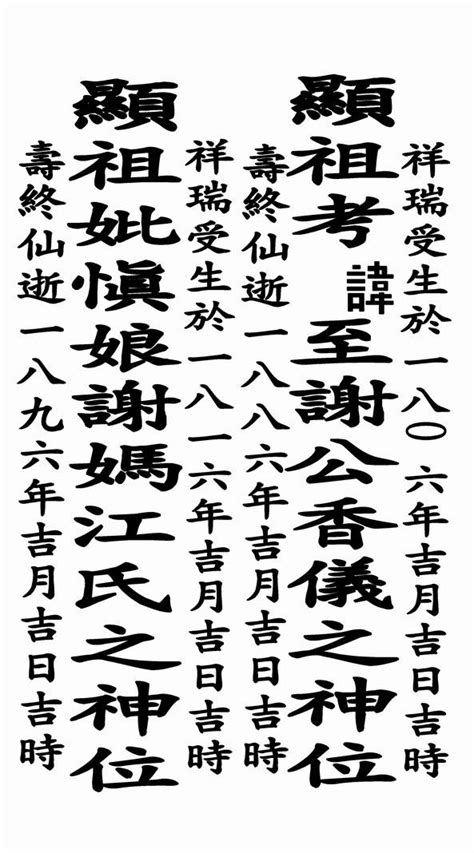 祥瑞受生於一八〇六年吉月吉日吉時
顯祖考諱至謝公香儀之神位
壽終仙逝一八八六年吉月吉日吉時
祥瑞受生於一八一六年吉月吉日吉時
顯祖妣慎娘謝媽江氏之神位
壽終仙逝一八九六年吉月吉日吉時